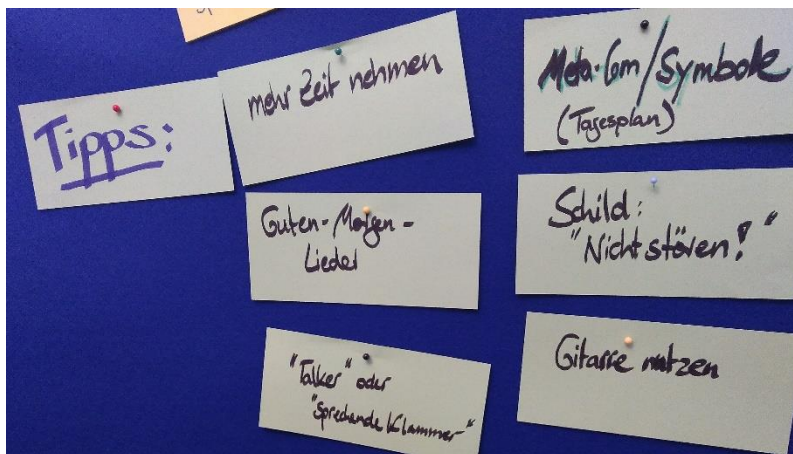 Tipps:
mehr Zeit nehmen
Guten-Morgen-
Lieder
"Talker" oder
"Sprechende Klammer"
Meta-Com/Symbole
(Tagesplan)
Schild:
"Nicht stören!"
Gitarre nutzen